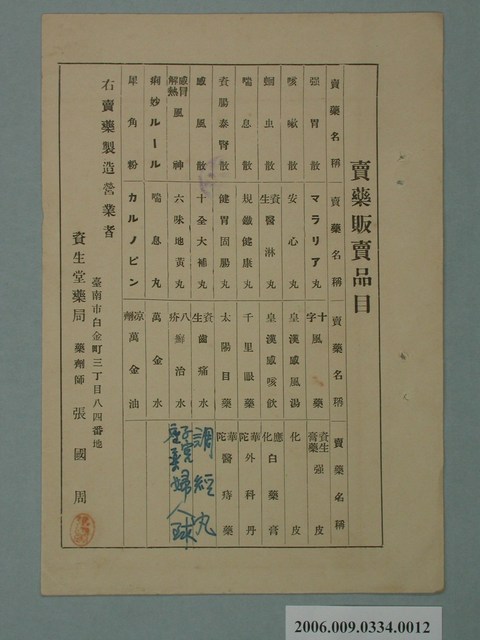 賣藥販賣品目
賣藥名稱 賣藥名稱 賣藥名稱 賣藥名稱
强胃散 マラリア丸 十字風藥 資生膏藥强皮
咳嗽散 安心丸 皇漢感風湯 化皮
蛔虫散 資生醫淋丸 皇漢感咳飲 應化白藥膏
喘息散 規鐵健康丸 千里眼藥 華陀外科丹
資腸泰腎散 健胃固腸丸 太陽目藥 華陀醫痔藥
感風散 十全大補丸 資生齒痛水 調經丸
感冒解熱風神 六味地黃丸 八疥癬治水
痢妙ルール 喘息丸 萬金水
犀角粉 カルノピン 凉州萬金油
右賣藥製造營業者
臺南市白金町三丁目八四番地
資生堂藥局 藥劑師 張國周
2006.009.0334.0012